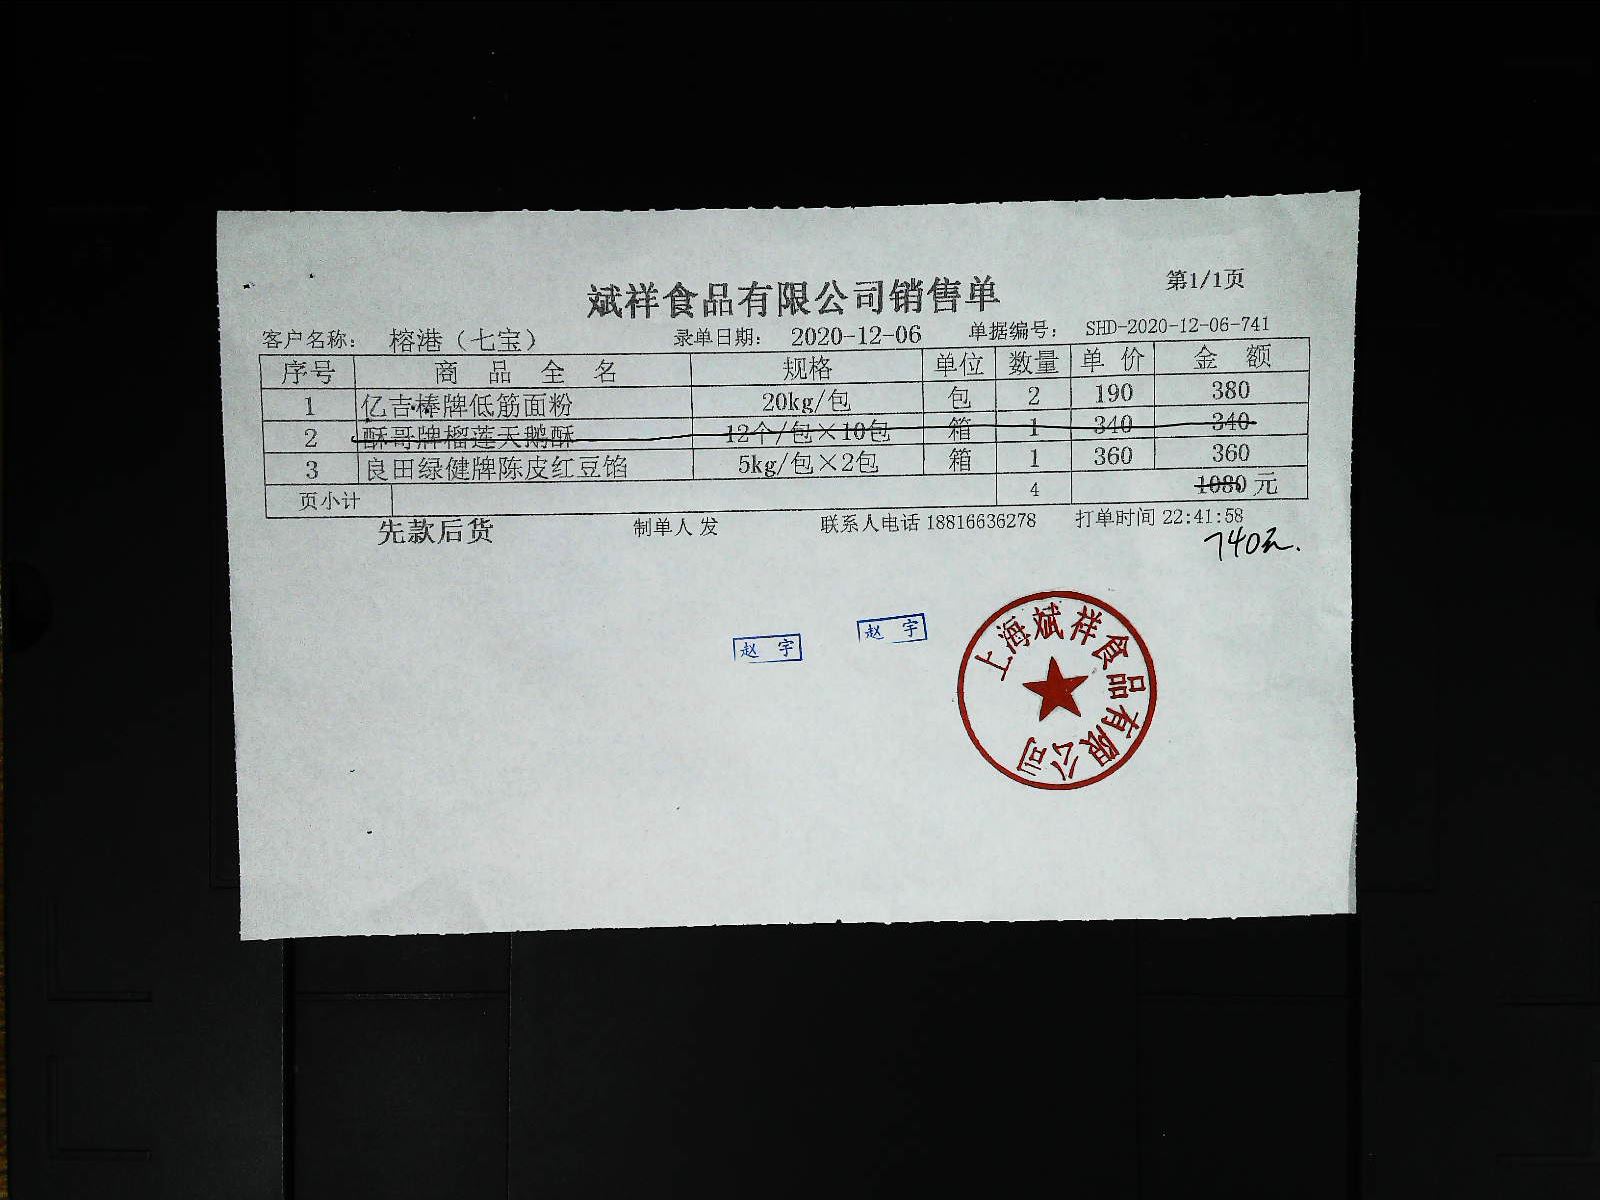 第1/1页
斌祥食品有限公司销售单
客户名称： 榕港（七宝） 录单日期： 2020-12-06 单据编号： SHD-2020-12-06-741
序号 商品全名 规格 单位 数量 单价 金额
1 亿吉棒牌低筋面粉 20kg/包 包 2 190 380
2 酥哥牌榴莲天鹅酥 12个/包×10包 箱 1 340 340
3 良田绿健牌陈皮红豆馅 5kg/包×2包 箱 1 360 360
页小计 4 1080元
先款后货 制单人 发 联系人电话 18816636278 打单时间 22:41:58
740元.
赵宇 赵宇
上海斌祥食品有限公司